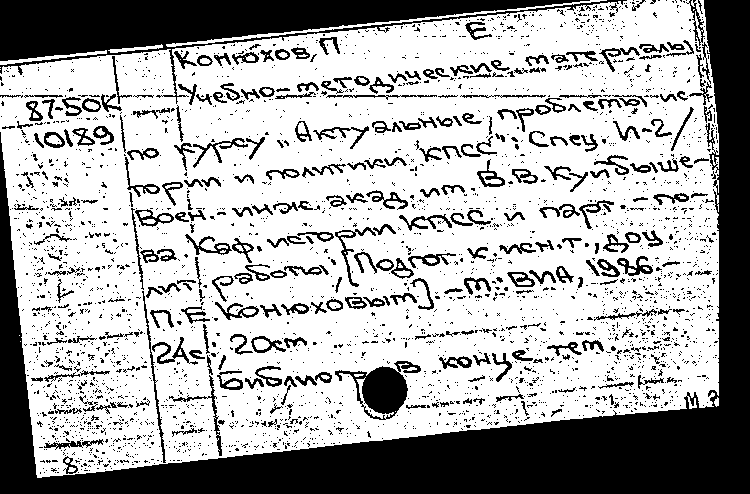 Конюхов, П Е
87-50К Учебно-методические материалы
10189 по курсу „Актуальные проблемы ис-
тории и политики КПСС": Спец. И-2/
Воен.-инж. акад. им. В.В.Куйбыше-
ва. Каф. истории КПСС и парт.-по-
лит. работы; [Подгот. к.ист.н., доц.
П.Е. Конюховым]. -М.: ВИА, 1986.-
24с.; 20см.
Библиогр. в конце тем.
8